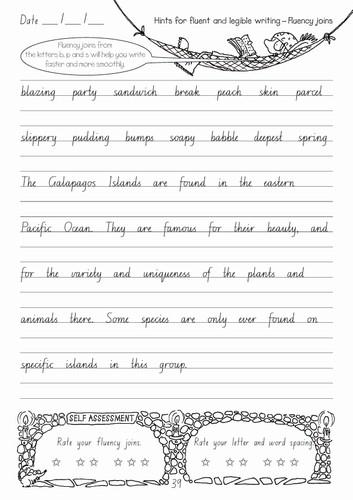 Date ___/___/___
Hints for fluent and legible writing – Fluency joins
Fluency joins from
the letters b, p and s will help you write
faster and more smoothly.
blazing party sandwich break peach skin parcel
slippery pudding bumps soapy babble deepest spring
The Galapagos Islands are found in the eastern
Pacific Ocean. They are famous for their beauty, and
for the variety and uniqueness of the plants and
animals there. Some species are only ever found on
specific islands in this group.
SELF ASSESSMENT
Rate your fluency joins.
Rate your letter and word spacing.
39